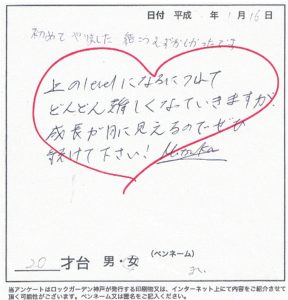 日付 平成 年 1月 16日
初めて やりました
上のlevelになるにつれて
どんどん難しくなっていきますが
成長が目に見えるのでぜひ
続けて下さい!
(ペンネーム)
20 才台 男・女
当アンケートはロックガーデン神戸が発行する印刷物又は、インターネット上にて内容をご紹介させて
頂く可能性がございます。ペンネーム又は匿名をご記入ください。